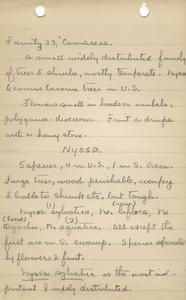 Family 33, Cornaceae.
A small widely distributed family
of trees & shrubs, mostly temperate. Nyssa
& Cornus become trees in U.S.
Flowers small in heads or umbels,
polygamo-dioecious. Fruit a drupe
with a heavy stone.
Nyssa.
5 species, 4 in U.S., 1 in S. Asia.
Large trees, wood perishable, warpey
& liable to shrink etc, but tough.
(1)
Nyssa sylvatica, N. biflora, N.
(2)
Ogeche, N. aquatica. All except the
first are in S. swamp. Species separated
by flowers & fruit.
Nyssa sylvatica is the most im-
portant & widely distributed.